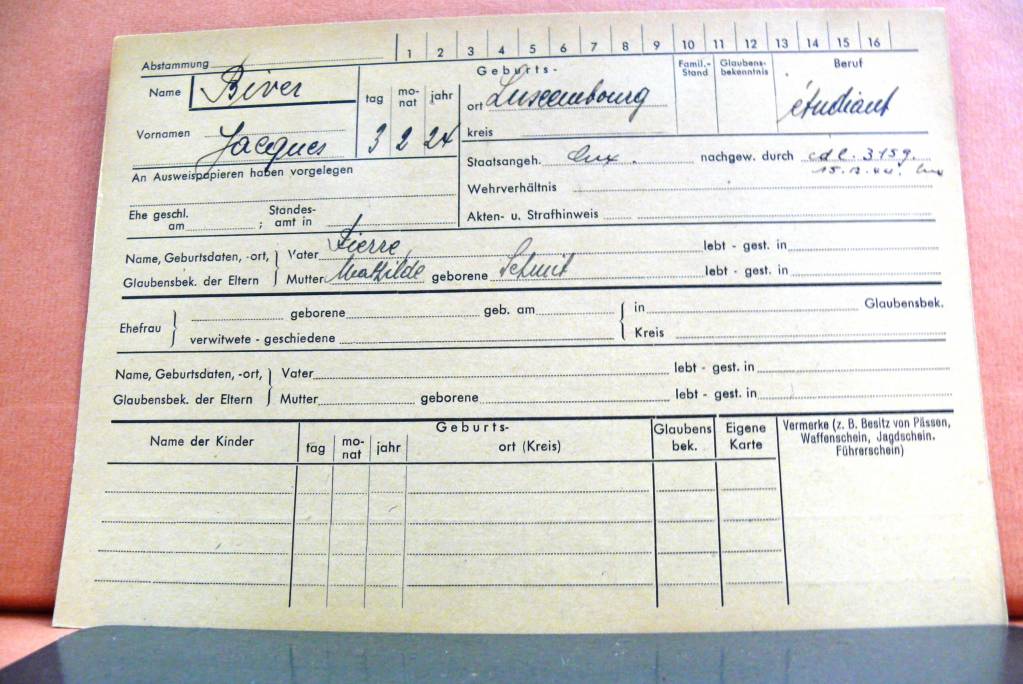 Abstammung 1 2 3 4 5 6 7 8 9 10 11 12 13 14 15 16
Name Biver Geburts- Famil.-Stand Glaubens-bekenntnis Beruf
tag mo-nat jahr ort Luxembourg étudiant
Vornamen Jacques 3 2 24 kreis
Staatsangeh. lux. nachgew. durch cdl. 3159.
An Ausweispapieren haben vorgelegen 15.12.44.
Wehrverhältnis
Ehe geschl. am ; Standes-amt in Akten- u. Strafhinweis
Name, Geburtsdaten, -ort, Vater Pierre lebt - gest. in
Glaubensbek. der Eltern Mutter Mathilde geborene Schmit lebt - gest. in
Ehefrau geborene geb. am in Glaubensbek.
verwitwete - geschiedene Kreis
Name, Geburtsdaten, -ort, Vater lebt - gest. in
Glaubensbek. der Eltern Mutter geborene lebt - gest. in
Name der Kinder Geburts- Glaubens bek. Eigene Karte Vermerke (z. B. Besitz von Pässen,
tag mo-nat jahr ort (Kreis) Waffenschein, Jagdschein.
Führerschein)